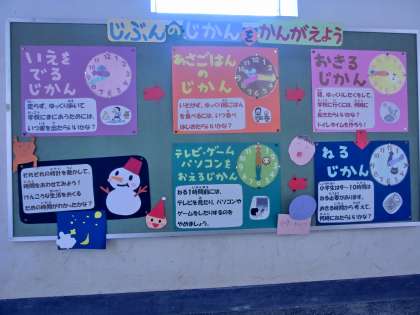 じぶんのじかんをかんがえよう
いえを
でる
じかん
走らず、ゆっくり歩いて
学校にまにあうためには、
いつ家を出たらいいかな？
あさごはん
の
じかん
いそがず、ゆっくり朝ごはん
を食べるには、いつ食べ
はじめたらいいかな？
おきる
じかん
朝、ゆっくりしたくをして、
学校に行くには、何時に
起きたらいいかな？
トイレタイムも作ろう！
それぞれの時計を動かして、
時間をあわせてみよう！
けんこうな生活をおくる
ための時間がわかったかな？
テレビ・ゲーム
パソコンを
おえるじかん
ねる1時間前には、
テレビを見たり、パソコンや
ゲームをしたりするのを
やめましょう。
ねる
じかん
小学生は9～10時間ね
る必要があります。
おきる時間から考えて、
何時にねたらいいかな？